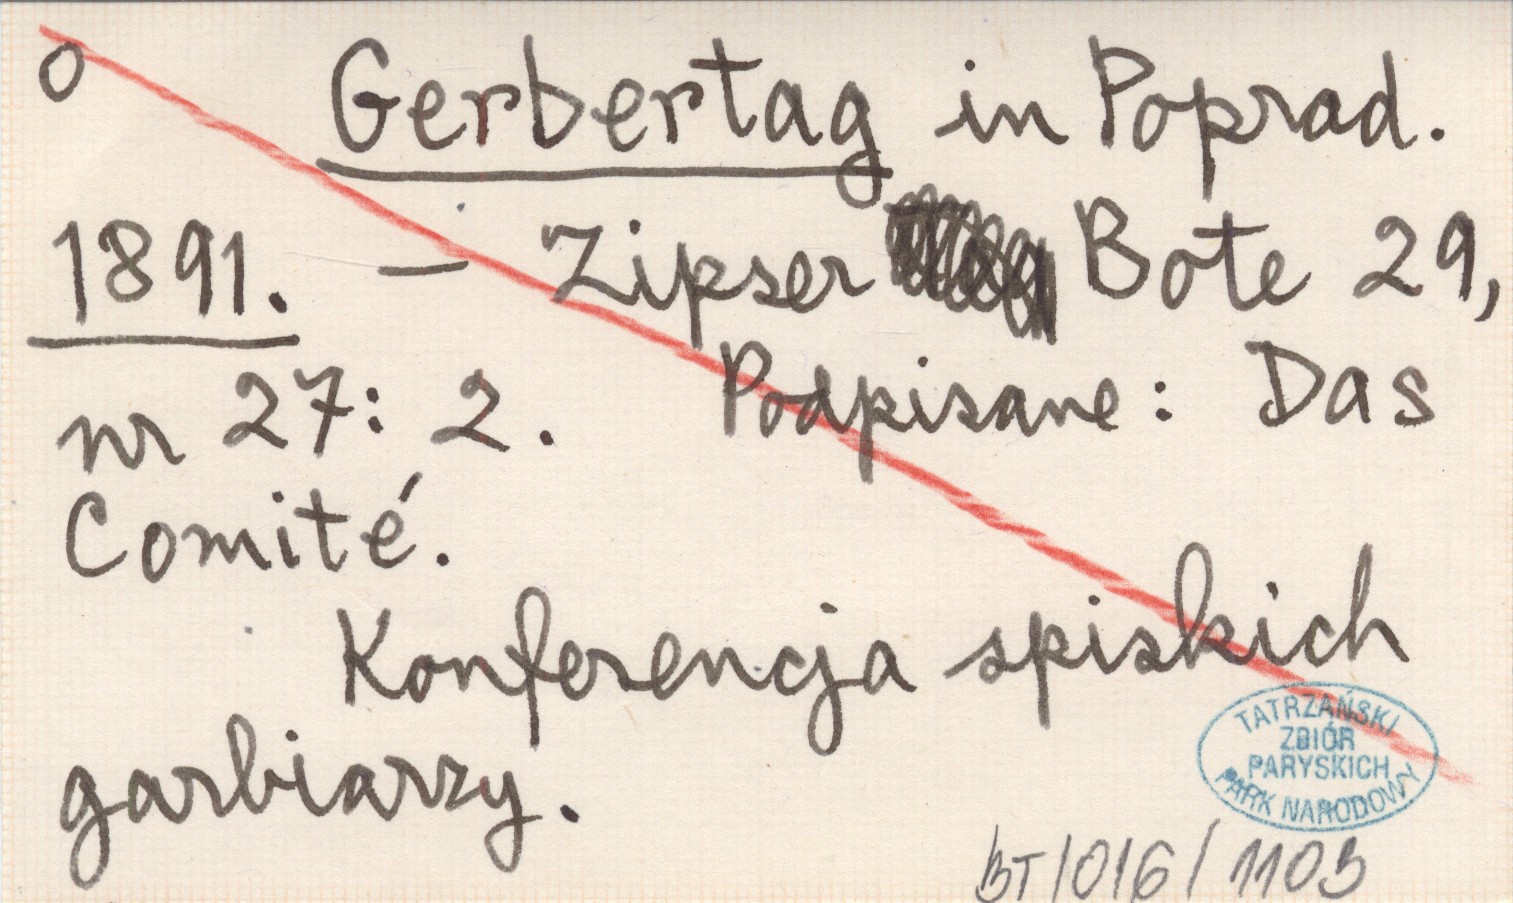 o Gerbertag in Poprad.
1891. – Zipser Bote 29,
nr 27: 2. Podpisane: Das
Comité.
Konferencja spiskich
garbiarzy.
TATRZAŃSKI
ZBIÓR
PARYSKICH
PARK NARODOWY
BT/016/1103